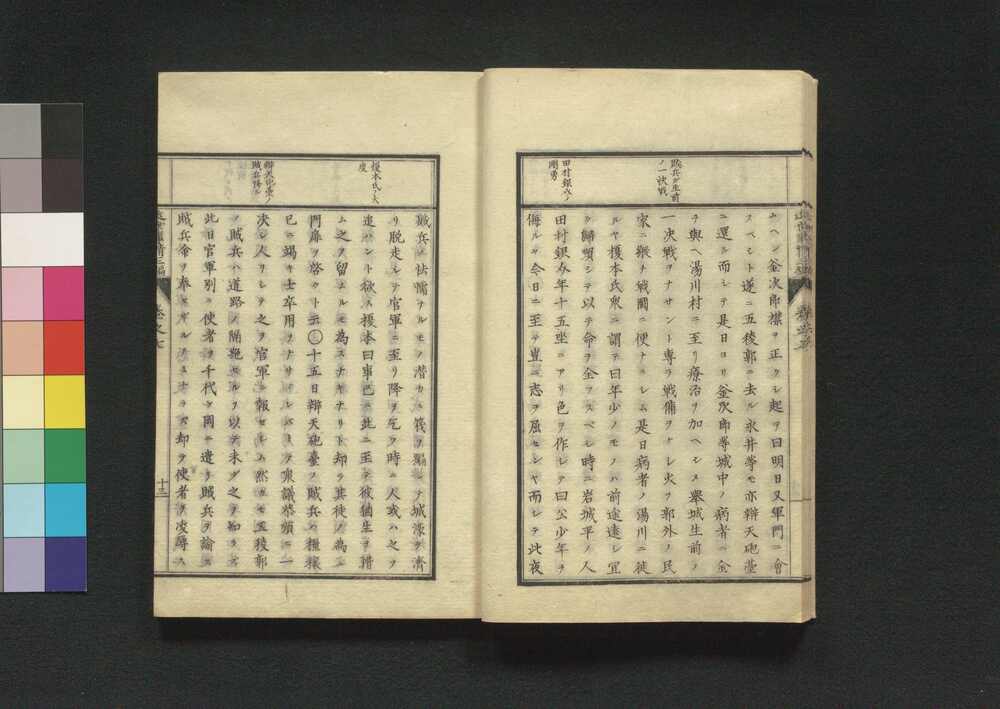 賊兵ガ生前
ノ一快戦
田村銀ノ
剛勇
ムヘシ釜次郎襟ヲ正クシ起テ曰明日又軍門ニ會
スベシト遂ニ五稜郭ニ去ル永井等モ亦辨天砲臺
ニ還ル而シテ是日ヨリ釜次郎等城中ノ病者ハ金
ヲ與ヘ湯川村ニ至リ療治ヲ加ヘシメ擧城生前ノ
一决戰ヲナサント専ラ戰備ヲナシ火ヲ郭外ノ民
家ニ縦チ戰鬪ニ便ナラシム是日病者ノ湯川ニ徙
ルヤ榎本氏衆ニ謂テ曰年少ノモノハ前途遠シ宜
ク歸順シテ以テ命ヲ全フスベシ時ニ岩城平ノ人
田村銀年十五座ニアリ色ヲ作シテ曰公少年ヲ
侮ルカ今日ニ至テ豈ニ志ヲ屈センヤ而シテ此夜
榎本氏ノ大
度
辨天砲臺ノ
賊兵降
賊兵ノ怯懦ナルモノ潜カニ筏ヲ編シテ城濠ヲ濟
リ脱走シテ官軍ニ至リ降ヲ乞フ時ニ人或ハ之ヲ
追ハント欲ス榎本曰事已ニ此ニ至テ彼猶生ヲ惜
ム之ヲ留ムルモ為スナキナリト却テ其徒ノ為ニ
門扉ヲ啓クト云○十五日辨天砲臺ノ賊兵ハ糧糗
已ニ竭キ士卒用ヲナサヽルニヨリ衆議蔡頭ニ一
决シ人ヲシテ之ヲ官軍ニ報セシム然レモ五稜郭
ノ賊兵ハ道路ノ隔絶セルヲ以テ未ダ之ヲ知ラズ
此日官軍別ニ使者ヲ千代ヶ岡ニ遣リ賊兵ヲ諭ス
賊兵命ヲ奉セザルノミナラズ却テ使者ヲ凌辱ス
十三